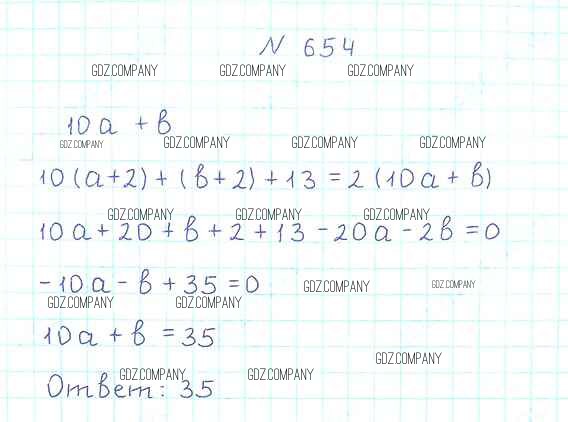 N 654
GDZ.COMPANY GDZ.COMPANY GDZ.COMPANY
10a + b
GDZ.COMPANY GDZ.COMPANY GDZ.COMPANY GDZ.COMPANY
10(a+2)+(b+2)+13=2(10a+b)
GDZ.COMPANY GDZ.COMPANY GDZ.COMPANY
10a+20+b+2+13-20a-2b=0
-10a-b+35=0
GDZ.COMPANY GDZ.COMPANY
GDZ.COMPANY GDZ.COMPANY
10a+b=35
GDZ.COMPANY
GDZ.COMPANY GDZ.COMPANY
Ответ: 35